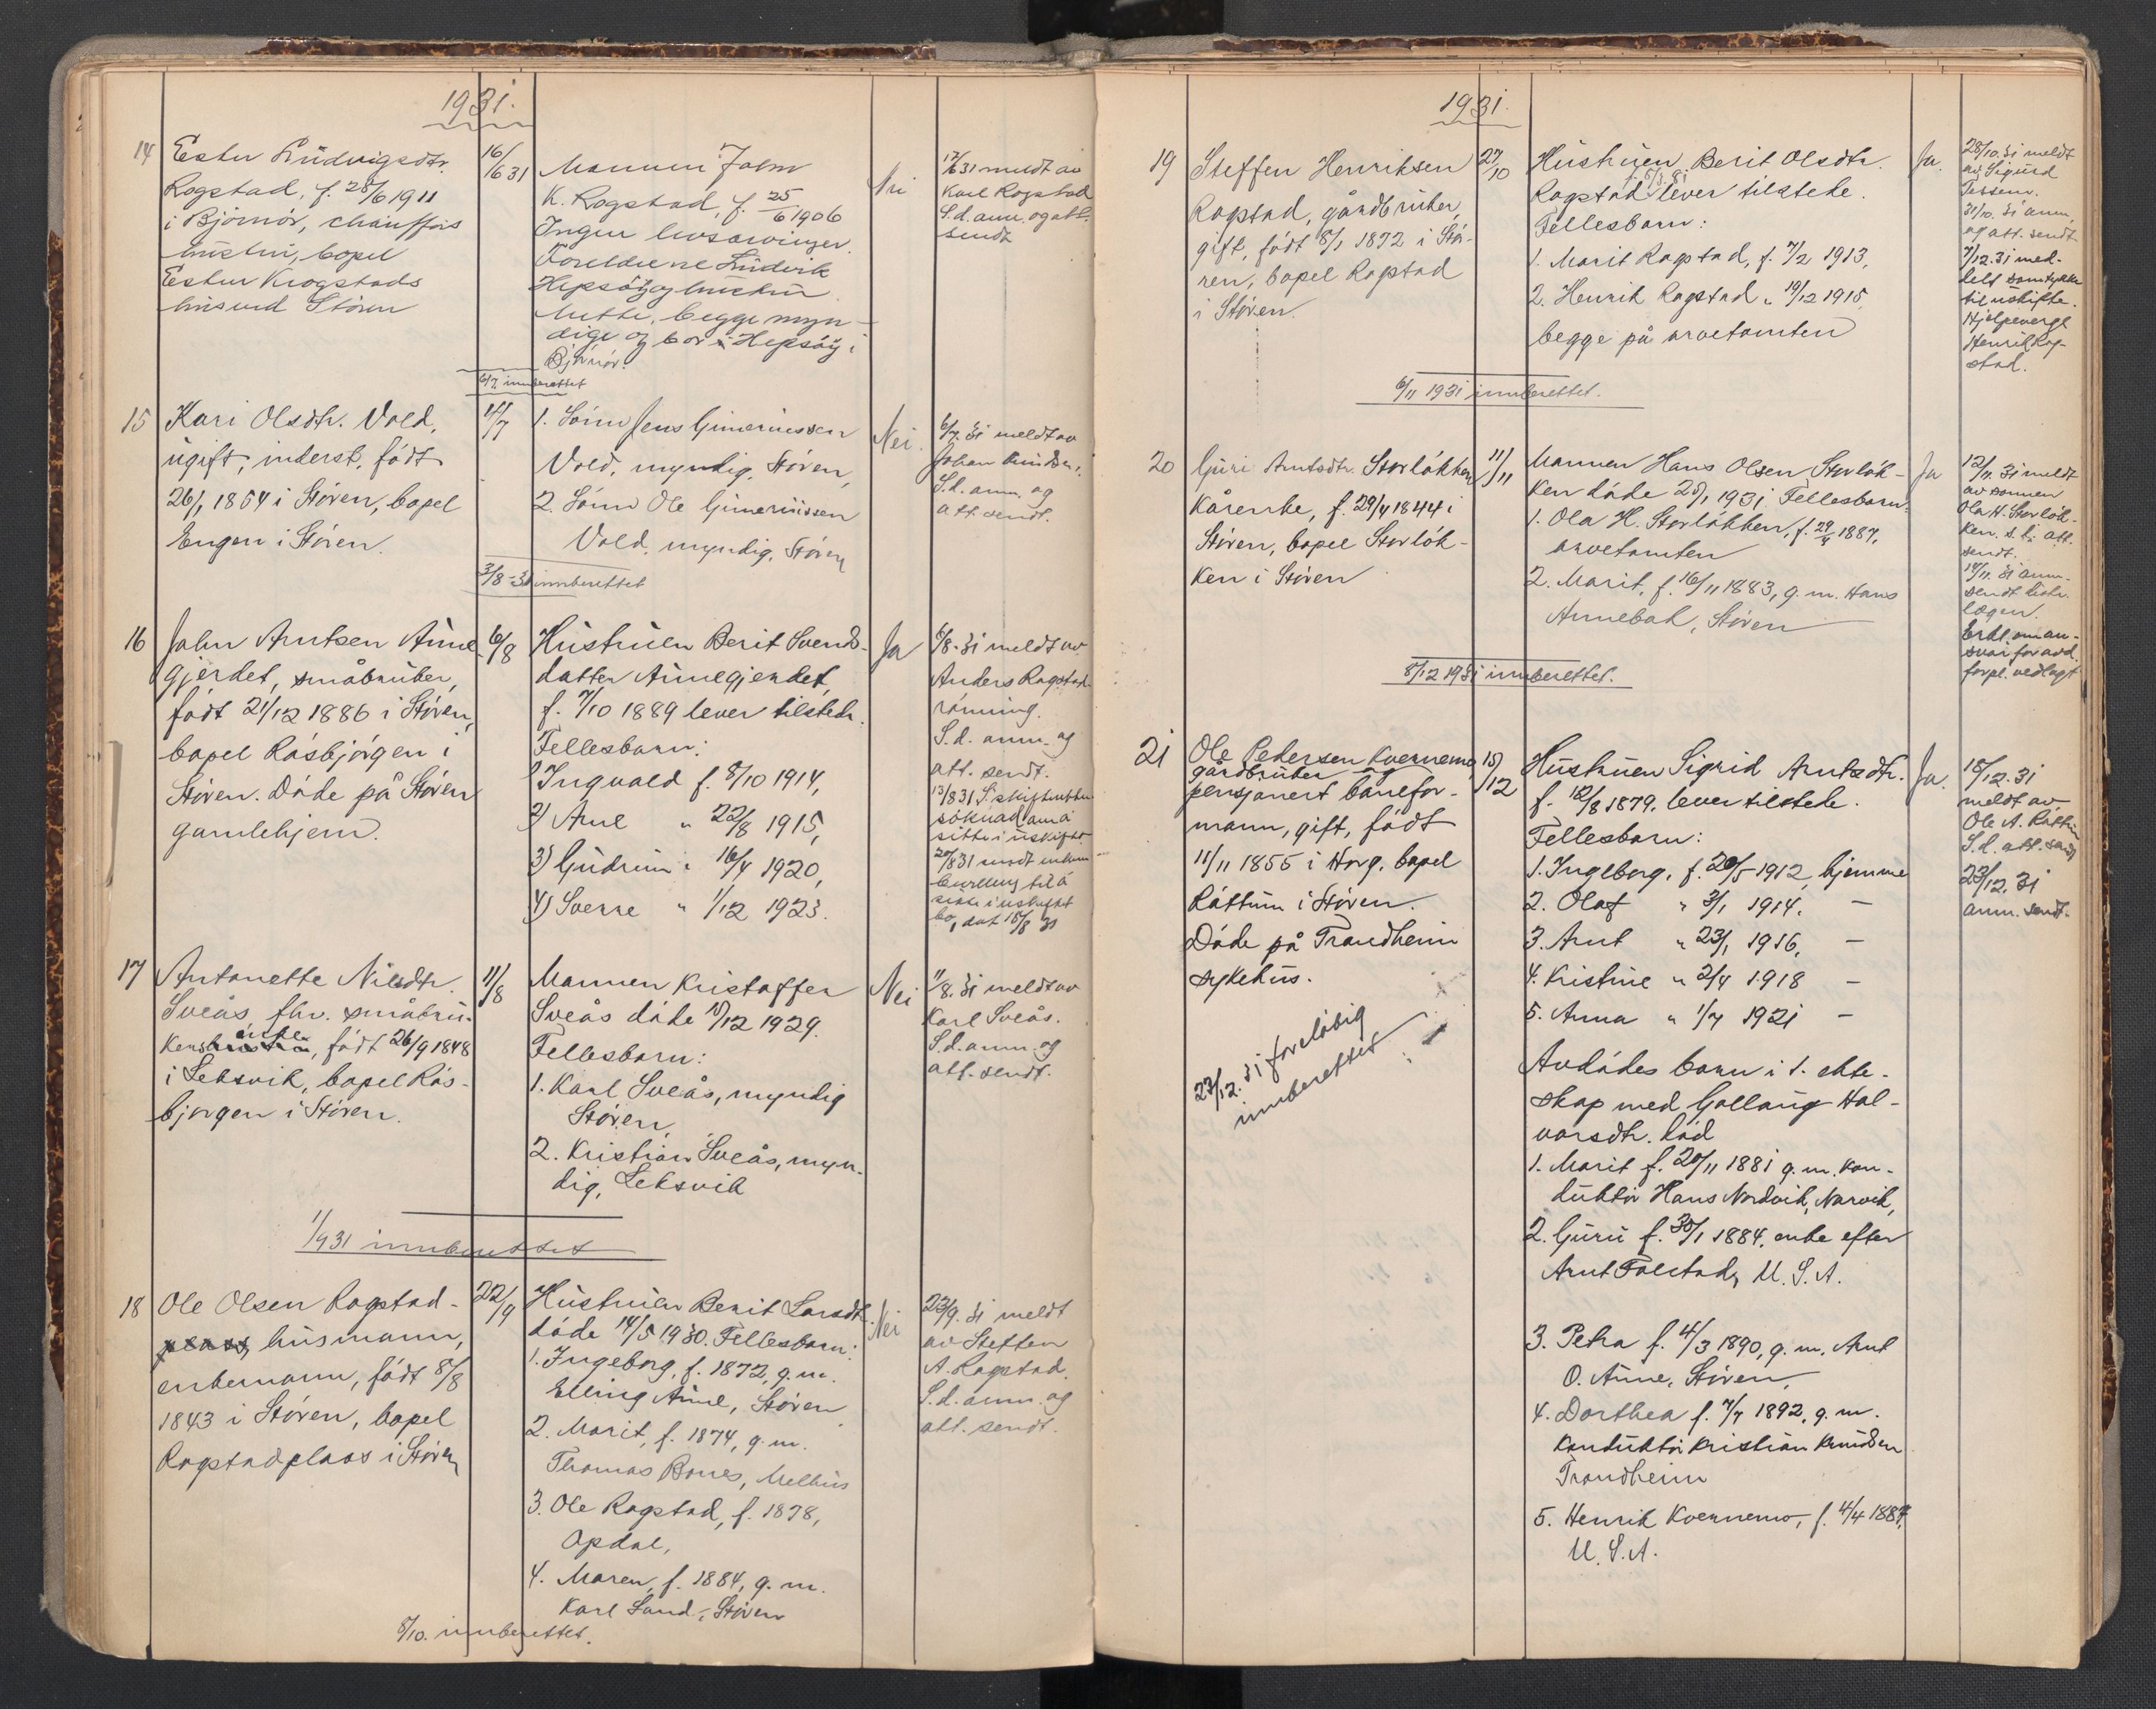 1931.
14
Ester Ludvigsdtr.
Rogstad, f. 28/6 1911
i Bjørnør, chaufførs
hustru, bopel
Ester Krogstads
hus ved Støren
16/6 31
Mannen John
K. Rogstad, f. 25/6 1906
Ingen livsarvinger.
Foreldrene Ludvik
Hepsøy og hustru
begge myn-
dige og bor i Hepsøy i
Bjørnør.
Nei
17/6 31 meldt av
Karl Rogstad
S.d. anm. og att.
sendt
6/7. innberettet
15
Kari Olsdtr. Vold,
ugift, inderst, født
26/1 1854 i Støren, bopel
Engen i Støren.
4/7
1. Sønn Jens Guneriussen
Vold, myndig, Støren,
2. Sønn Ole Guneriussen
Vold, myndig, Støren
Nei.
6/7. 31 meldt av
Johan
S.d. anm. og
att. sendt.
3/8-31 innberettet
16
John Arntsen Aune-
gjerdet, småbruker,
født 21/12 1886 i Støren,
bopel Røsbjørgen i
Støren. Døde på Støren
gamlehjem.
6/8
Hustruen Berit Svends-
datter Aunegjerdet,
f. 7/10 1889 lever tilstede.
Fellesbarn:
1) Ingvald f. 8/10 1914,
2) Arne " 22/8 1915,
3) Gudrun " 16/4 1920,
4) Sverre " 1/12 1923.
Ja
6/8-31 meldt av
Anders Rogstad-
rønning.
S.d. anm. og
att. sendt.
13/8 31 S. skifteretten
søknad om å
sitte i uskiftet
20/8 31 sendt enken
bevilling til å
sitte i uskiftet
bo, dat 18/8 31
17
Antonette Nilsdtr.
Sveås, fhv. småbru-
kers enke, født 26/9 1848
i Leksvik, bopel Røs-
bjørgen i Støren.
11/8
Mannen Kristoffer
Sveås døde 10/12 1929.
Fellesbarn:
1. Karl Sveås, myndig
Støren,
2. Kristian Sveås, myn-
dig, Leksvik
Nei
11/8. 31 meldt av
Karl Sveås.
S.d. anm. og
att. sendt.
1/9 31 innberettet
18
Ole Olsen Rogstad-
plass, husmann,
enkemann, født 8/8
1843 i Støren, bopel
Rogstadplass i Støren
22/9
Hustruen Berit Larsdtr.
døde 14/5 1930. Fellesbarn:
1. Ingeborg, f. 1872, g. m.
Elling Aune, Støren,
2. Marit, f. 1874, g. m.
Thomas Bones, Melhus
3. Ole Rogstad, f. 1878,
Opdal,
4. Maren, f. 1884, g. m.
Karl Sand, Støren
Nei
23/9. 31 meldt
av Steffen
A. Rogstad.
S.d. anm. og
att. sendt.
8/10. innberettet.
1931.
19
Steffen Henriksen
Rogstad, gårdbruker,
gift, født 8/1 1872 i Stø-
ren, bopel Rogstad
i Støren.
27/10
Hustruen Berit Olsdtr.
Rogstad lever tilstede.
Fellesbarn:
1. Marit Rogstad, f. 7/2 1913,
2. Henrik Rogstad " 19/12 1915
begge på arvetomten
Ja.
28/10. 31 meldt
av Sigurd
Tessem.
31/10. 31 anm.
og att. sendt
7/12.31 med-
delt samtykke
til uskifte.
Hjelpeverge
Henrik Rog-
stad.
6/11 1931 innberettet.
20
Guri Arntsdtr. Storløkken
kårenke, f. 29/4 1844 i
Støren, bopel Storløk-
ken i Støren
11/11
Mannen Hans Olsen Storløk-
ken døde 25/1 1931. Fellesbarn:
1. Ola H. Storløkken, f. 29/4 1887,
arvetomten
2. Marit, f. 16/11 1883, g. m. Hans
Støren
Ja
12/11. 31 meldt
av sønnen
Ola H. Storløk-
ken. S.d. att.
sendt.
14/11. 31 anm.
sendt
lægen.
Erkl. om an-
svar for avd.
forpl. vedlagt
8/12 1931 innberettet.
21
Ole Pedersen Kvernemo
gårdbruker og
pensjonert banefor-
mann, gift, født
11/11 1855 i Horg, bopel
Råttum i Støren.
Døde på Trondheim
sykehus.
15/12
Hustruen Sigrid Arntsdtr.
f. 12/8 1879, lever tilstede.
Fellesbarn:
1. Ingeborg, f. 20/5 1912, hjemme
2. Olaf " 3/1 1914. —
3. Arnt " 23/1 1916, —
4. Kristine " 2/4 1918 —
5. Anna " 1/7 1921 —
Avdødes barn i 1. ekte-
skap med Gollaug Hal-
varsdtr. død
1. Marit f. 20/11 1881 g. m. kon-
duktør Hans Nordvik, Narvik,
2. Guru f. 30/1 1884, enke efter
Arnt Folstad, U. S. A.
3. Petra f. 4/3 1890, g. m. Arnt
O. Aune, Støren,
4. Dorthea f. 7/7 1892, g. m.
konduktør Kristian Knudsen
Trondheim
5. Henrik Kvernemo, f. 4/4 1887,
U. S. A.
Ja.
18/12. 31
meldt av
Ole A. Råttum
S.d. att. sendt
23/12. 31
anm. sendt.
23/12. 31 foreløbig
innberettet